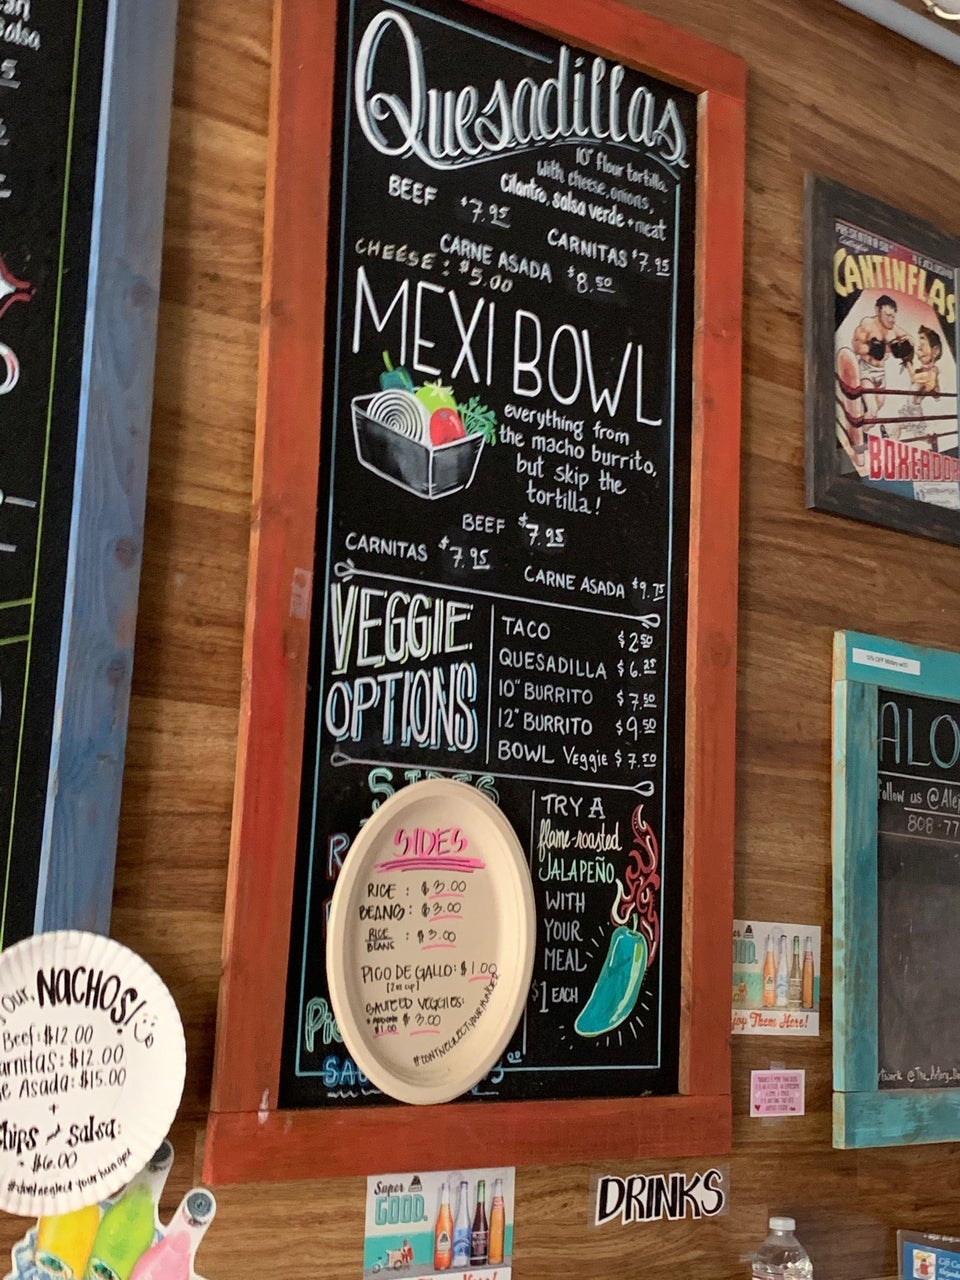 Salsa
Quesadillas
10" flour tortilla
with cheese, onions,
cilantro, salsa verde + meat
BEEF $7.95
CARNITAS $7.95
CARNE ASADA $8.50
CHEESE: $5.00
MEXI BOWL
everything from
the macho burrito,
but skip the
tortilla!
BEEF $7.95
CARNITAS $7.95
CARNE ASADA $9.75
VEGGIE
OPTIONS
TACO $2.50
QUESADILLA $6.25
10" BURRITO $7.50
12" BURRITO $9.50
BOWL Veggie $7.50
SIDES
SIDES
RICE: $3.00
BEANS: $3.00
RICE
BEANS : $3.00
PICO DE GALLO: $1.00
[2oz cup]
SAUTEED VEGGIES:
$3.00
$1.00
#DONTNEGLECTYOURHUNGER
TRY A
flame-roasted
JALAPEÑO
WITH
YOUR
MEAL
$1 EACH
our, NACHOS!
Beef: $12.00
arnitas: $12.00
e Asada: $15.00
+
Chips and salsa:
- $6.00
#dontneglectyourhunger
CANTINFLAS
BOXEADOR
10% OFF Military
ALO
Follow us @Alej
808-77
GOOD.
joy Them Here!
Super
GOOD.
DRINKS
Gift C